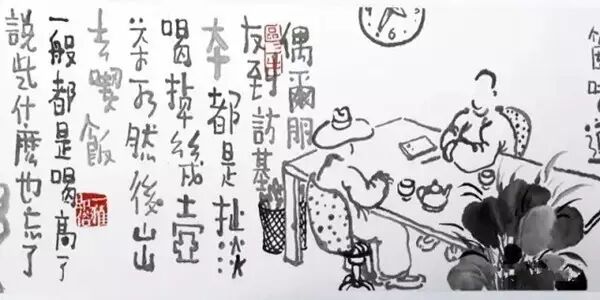 偶爾朋
友到訪基
本都是扯淡
喝掉幾壺
茶水然後出
去喫飯
一般都是喝高了
說些什麼也忘了